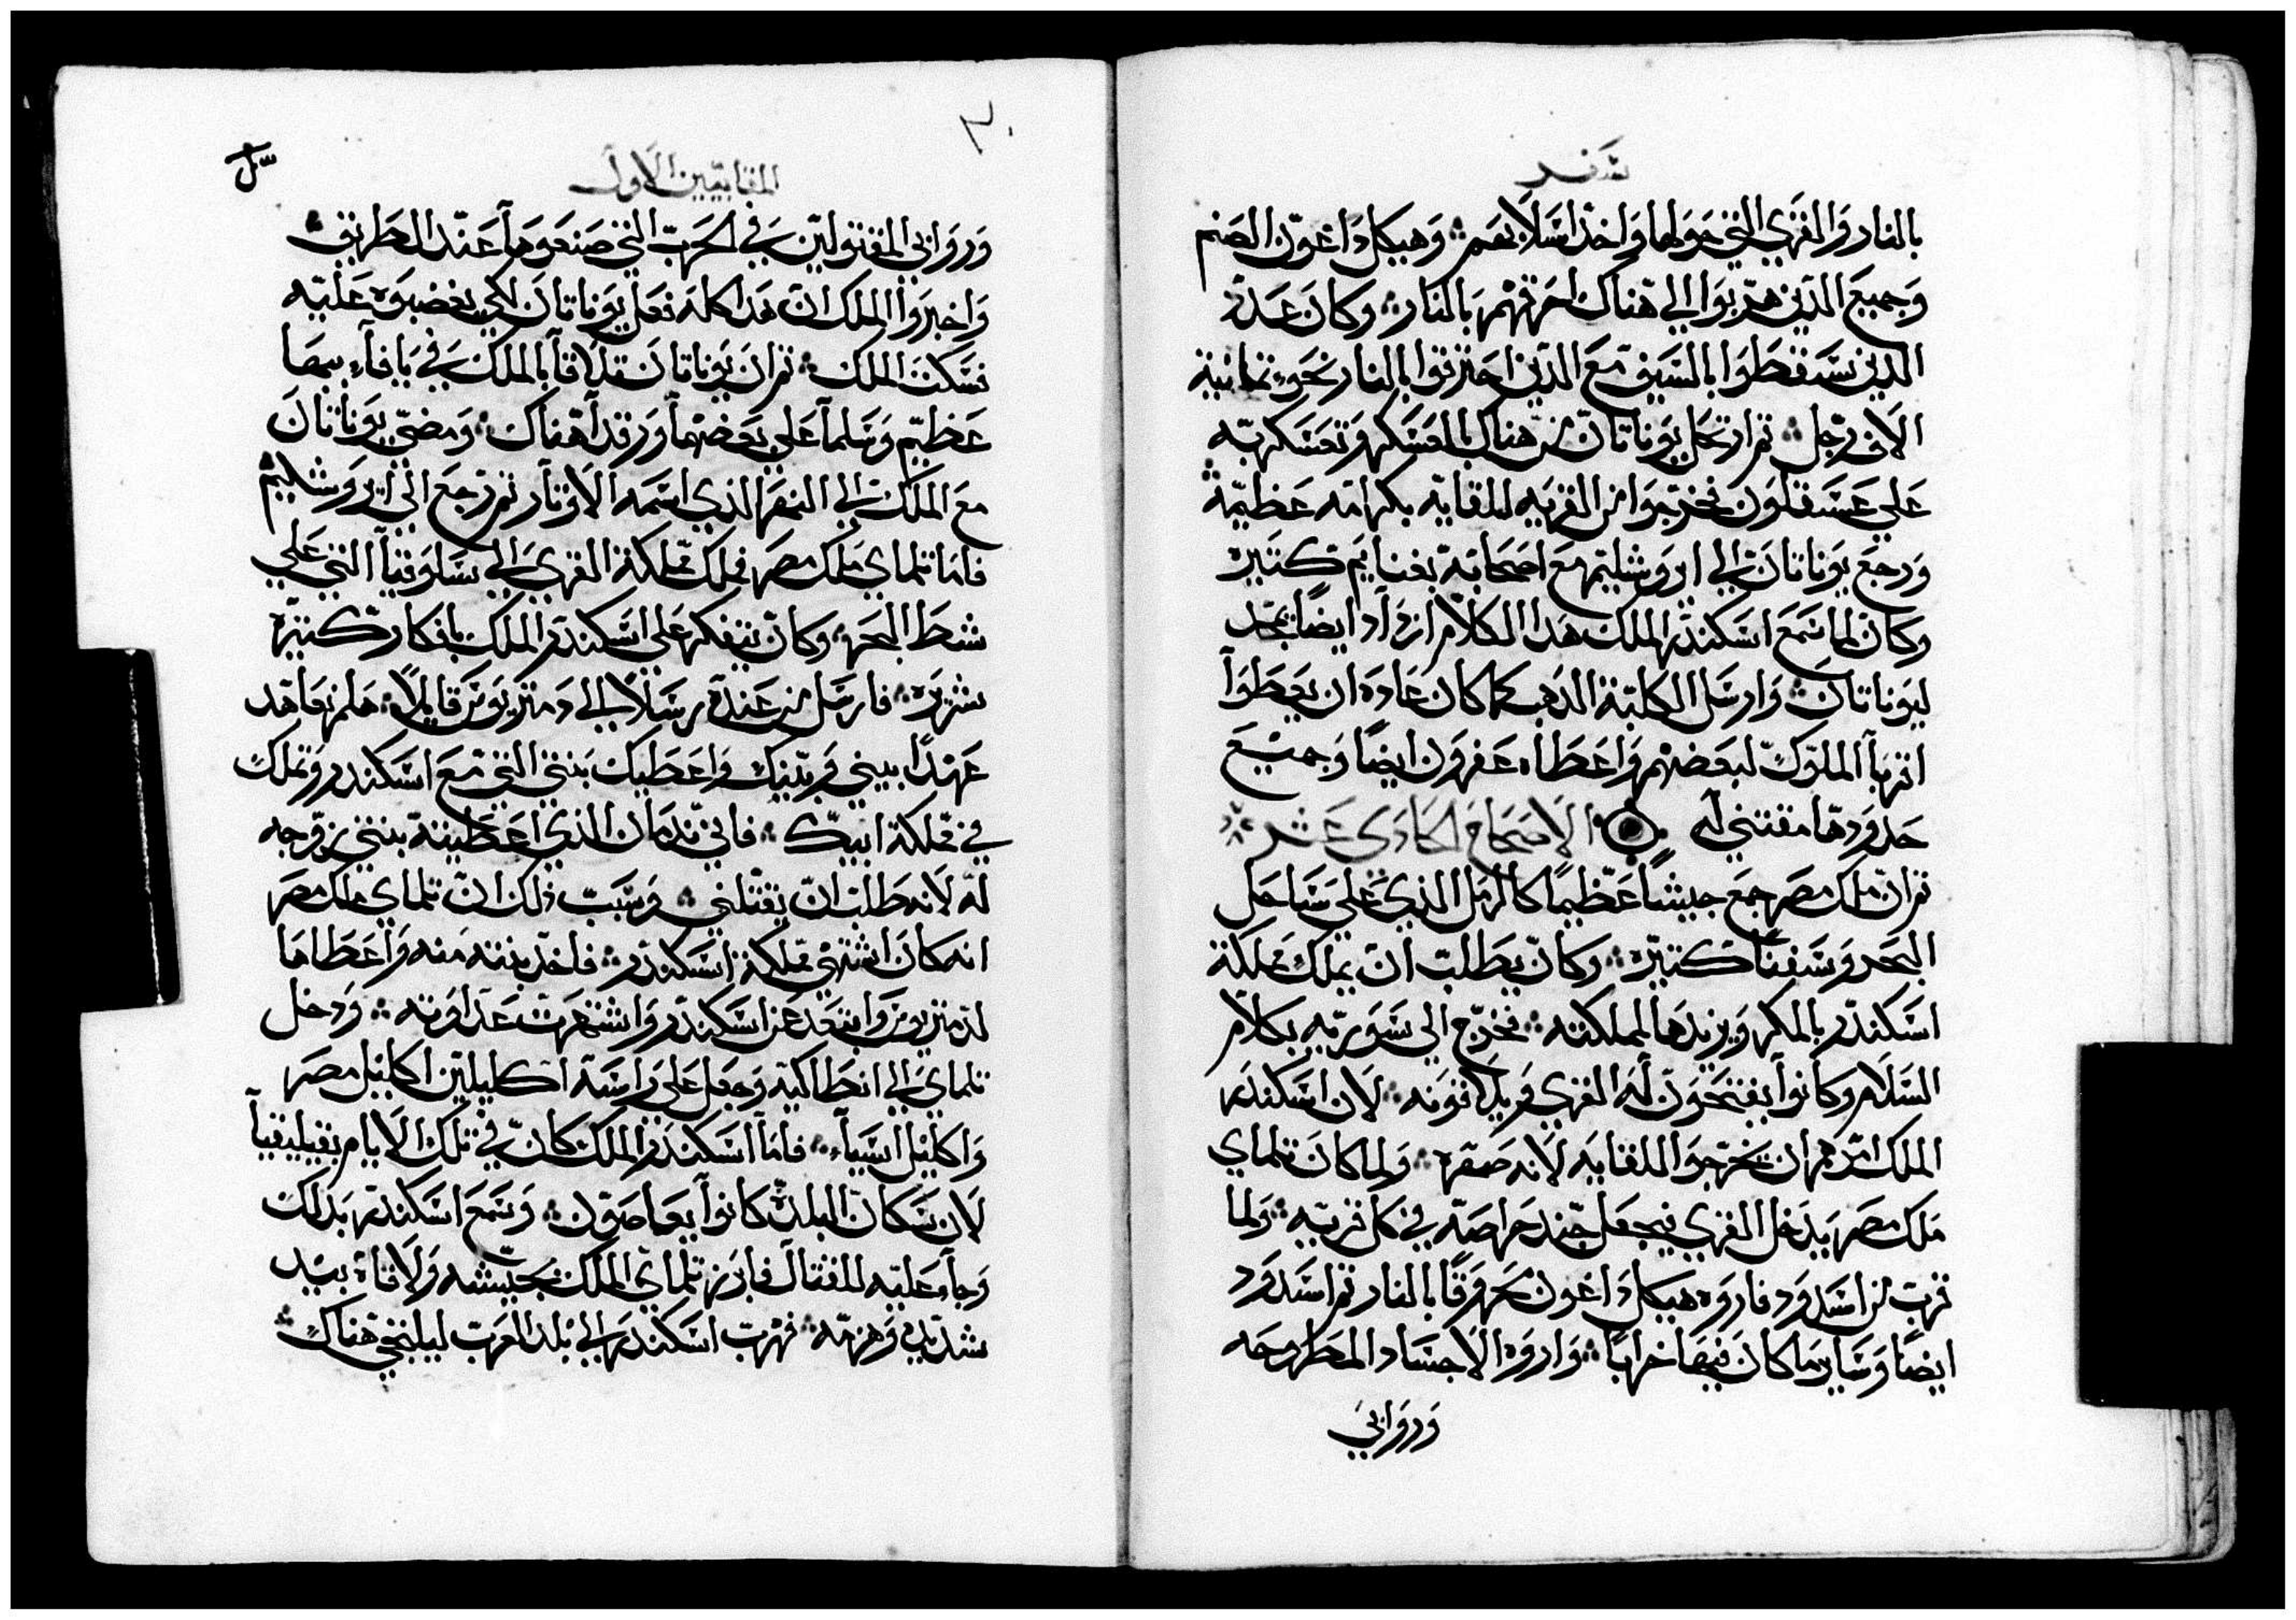 سفر
بالنار والقري التي حولها واخذ اسلابهم ؞ وهيكل داغون الصنم
وجميع الدين هربوا الي هناك احرقهم بالنار ؞ وكان عدة
الدين سقطوا بالسيف مع الدين احترقوا بالنار نحو ثمانية
الاف رجل ؞ ثم ارتحل يوناتان من هناك بالعسكر وتعسكر به
علي عسقلون فخرجوا من القريه للقايه بكرامه عظيمة ؞
ورجع يوناتان الي ايروشليم مع اصحابه بغنايم كتيره
وكان لما سمع اسكندر الملك هدا الكلام ازداد ايضا بمجد
ليوناتان ؞ وارسل اكلبة الدهب كما كان عاده ان يعطوا
اقربا الملوك لبعضهم واعطاه عفرون ايضا وجميع
حدودها مقتني له الاصحاح الحادي عشر ؞
ثم ان ملك مصر جمع جيشا عظيما كالرمل الذي علي ساحل
البحر وسفنا كتيره ؞ وكان يطلب ان يملك مملكة
اسكندر بالمكر ويزيدها لمملكته ؞ فخرج الي سوريه بكلام
السلام وكانوا يفتحون له القري ويلاقونه ؞ لان اسكندر
الملك امرهم ان يخرجوا للقايه لانه صهره ؞ ولما كان تلماي
ملك مصر يدخل القري فيجعل جند حراصه في كل قريه ؞ ولما
قرب من اسدود فاروه هيكل داغون محروقا بالنار ثم اسدود
ايضا وساير ما كان فيها خرابا ؞ واروه الاجساد المطروحه
وروابي
٣٠
المقابيين الاول
وروابي المقتولين في الحرب التي صنعوها عند الطريق ؞
واخبروا الملك ان هدا كله فعل يوناتان لكي يغضبوه عليه
فسكت الملك ؞ ثم ان يوناتان تلاقا بالملك في يافا بمها
عظيم وسلما علي بعضهما ورقدا هناك ؞ ومضي يوناتان
مع الملك الي النهر الذي اسمه الاوتار ثم رجع الي ايروشليم ؞
فاما تلماي ملك مصر فملك مملكة القري الي سلوقيا التي علي
شط البحر ؞ وكان يتفكر علي اسكندر الملك بافكار كتيره
شريره ؞ فارسل من عنده رسلا الي دمتريوس قايلا ؞ هلم نعاهد
عهدا بيني وبينك واعطيك بنتي التي مع اسكندر وتملك
في مملكة ابيك ؞ فاني ندمان الذي اعطيته بنتي بزوجه
له لانه طلب ان يقتلني ؞ وسبب ذلك ان تلماي ملك مصر
انه كان اشتهي مملكة اسكندر ؞ فاخذ بنته منه واعطاها
لدمتريوس وابتعد عن اسكندر واشتهرت عداوته ؞ ودخل
تلماي الي انطاكيه وجعل علي راسه اكليلين اكليل مصر
واكليل اسيا ؞ فاما اسكندر الملك كان في تلك الايام بقيليقيا
لان سكان البلد كانوا يعاصون ؞ وسمع اسكندر بدلك
وجا عليه للقتال فابرز تلماي الملك بجيشه ولاقاه بيد
شديده وهزمه ؞ فهرب اسكندر الي بلد العرب ليلتجي هناك ؞